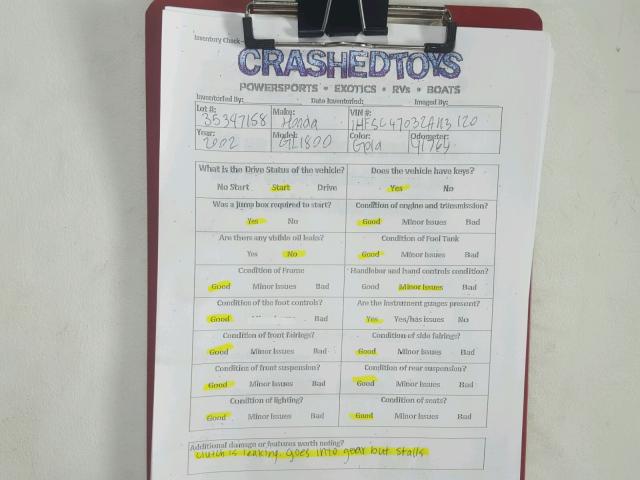 Inventory Check
CRASHEDTOYS
POWERSPORTS • EXOTICS • RVs • BOATS
Inventoried By: Date Inventoried: Imaged By:
Lot #: 35347158 Make: Honda VIN #: 1HFSC47032A113120
Year: 2002 Model: GL1800 Color: Gold Odometer: 91764
What is the Drive Status of the vehicle? Does the vehicle have keys?
No Start Start Drive Yes No
Was a jump box required to start? Condition of engine and transmission?
Yes No Good Minor Issues Bad
Are there any visible oil leaks? Condition of Fuel Tank
Yes No Good Minor Issues Bad
Condition of Frame Handlebar and hand controls condition?
Good Minor Issues Bad Good Minor Issues Bad
Condition of the foot controls? Are the instrument guages present?
Good Bad Yes Yes/has issues No
Condition of front fairings? Condition of side fairings?
Good Minor Issues Bad Good Minor Issues Bad
Condition of front suspension? Condition of rear suspension?
Good Minor Issues Bad Good Minor Issues Bad
Condition of lighting? Condition of seats?
Good Minor Issues Bad Good Minor Issues Bad
Additional damage or features worth noting?
clutch is leaking. goes into gear but stalls